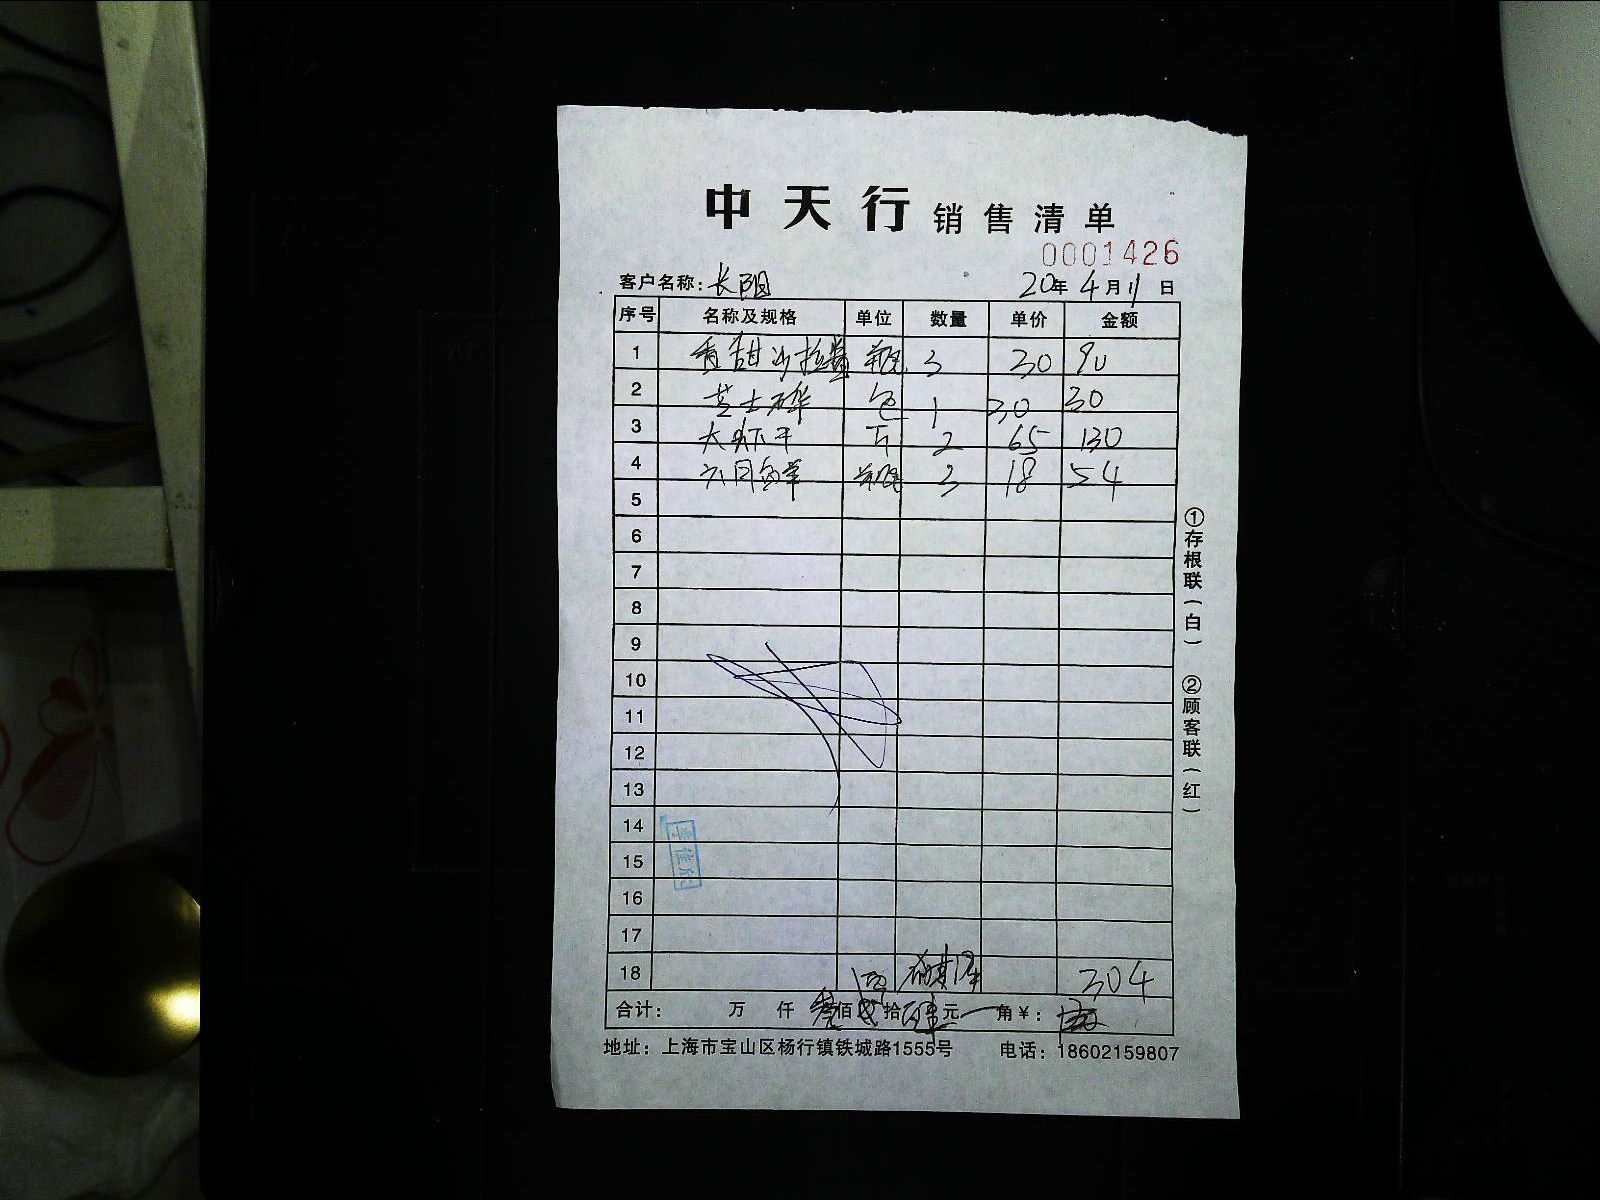 中天行 销售清单
0001426
客户名称: 长阳 20年 4月11日
序号 名称及规格 单位 数量 单价 金额
1 香甜沙拉酱 瓶 3 30 90
2 芝士碎 包 1 30 30
3 大虾干 斤 2 65 130
4 六月鲜 瓶 3 18 54
5
6
7
8
9
10
11
12
13
14
15
16
17
18 304
合计: 万 仟 叁佰 拾 肆元 角 ¥:
地址: 上海市宝山区杨行镇铁城路1555号 电话: 18602159807
①存根联(白) ②顾客联(红)